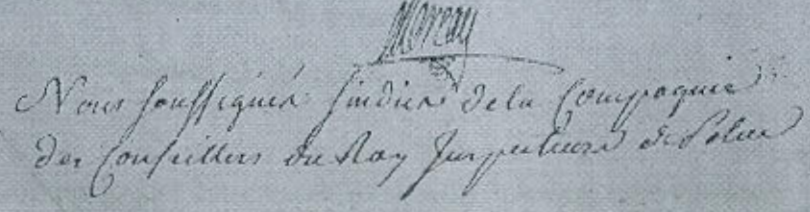 Moreau
Nous soussignés sindics de la Compagnie
des Conseillers du Roy Inspecteurs de Police